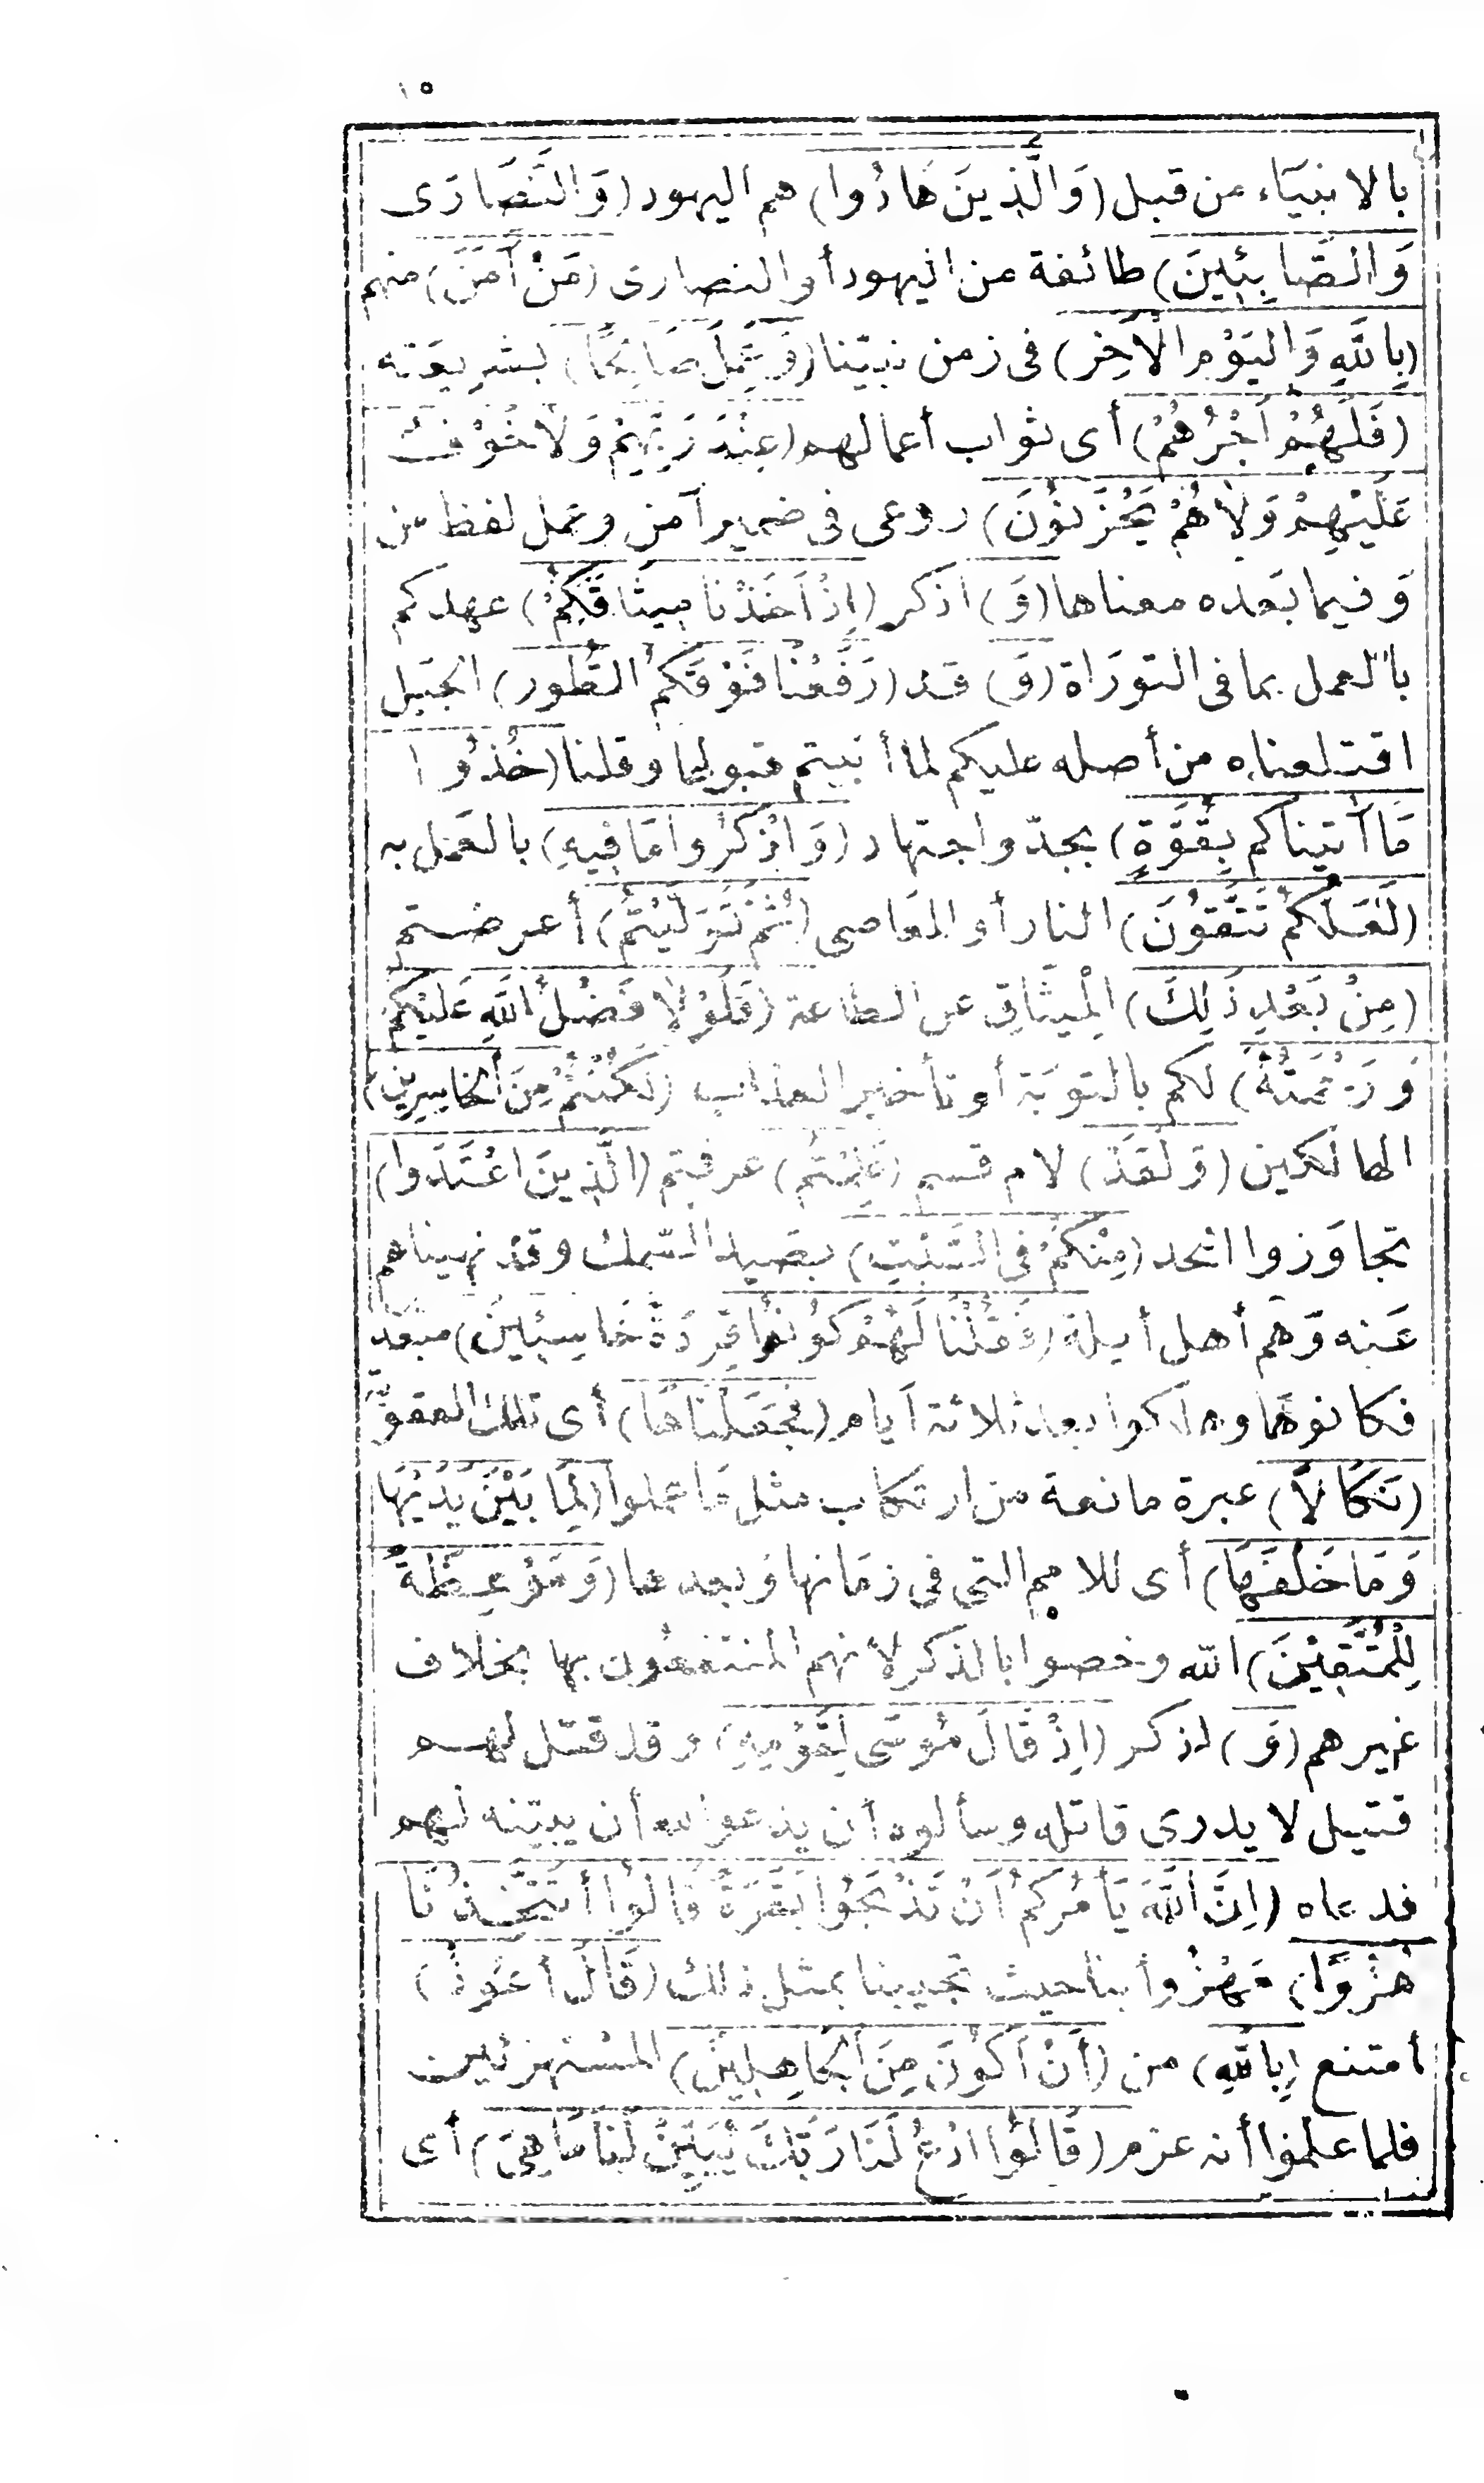 ١٥
بالانبياء من قبل (وَالَّذِينَ هَادُوا) هم اليهود (وَالنَّصَارَى
وَالصَّابِئِينَ) طائفة من اليهود أو النصارى (مَنْ آمَنَ) منهم
(بِاللَّهِ وَالْيَوْمِ الْآخِرِ) فى زمن نبيّنا (وَعَمِلَ صَالِحًا) بشريعته
(فَلَهُمْ أَجْرُهُمْ) أى ثواب أعمالهم (عِنْدَ رَبِّهِمْ وَلَا خَوْفٌ
عَلَيْهِمْ وَلَا هُمْ يَحْزَنُونَ) روعى فى ضمير آمن وعمل لفظ من
وَفيما بَعده معناها (وَ) اذكر (إِذْ أَخَذْنَا مِيثَاقَكُمْ) عهدكم
بالعمل بما فى التورَاة (وَ) قد (رَفَعْنَا فَوْقَكُمُ الطُّورَ) الجبَل
اقتلعناه من أصله عليكم لما أبيتم قبولها وقلنا (خُذُوا
مَا آتَيْنَاكُمْ بِقُوَّةٍ) بجدّ واجتهاد (وَاذْكُرُوا مَا فِيهِ) بالعَمل به
(لَعَلَّكُمْ تَتَّقُونَ) النار أو المعَاصى (ثُمَّ تَوَلَّيْتُمْ) أعرضتم
(مِنْ بَعْدِ ذَلِكَ) الْمِيثَاقِ عن الطاعة (فَلَوْلَا فَضْلُ اللَّهِ عَلَيْكُمْ
وَرَحْمَتُهُ) لكم بالتوبَة أو تأخير العذاب (لَكُنْتُمْ مِنَ الْخَاسِرِينَ)
الهالكين (وَلَقَدْ) لام قسم (عَلِمْتُمُ) عرفتم (الَّذِينَ اعْتَدَوْا)
تجاوَزوا الحد (مِنْكُمْ فِي السَّبْتِ) بصَيد السّمك وقد نهيناهم
عَنه وَهم أهل أيلة (فَقُلْنَا لَهُمْ كُونُوا قِرَدَةً خَاسِئِينَ) مبعَدين
فكانوهَا وهلكوا بعد ثلاثة أيام (فَجَعَلْنَاهَا) أى تلك العقوبة
(نَكَالًا) عبرة مانعة من ارتكاب مثل مَا عملوا (لِمَا بَيْنَ يَدَيْهَا
وَمَا خَلْفَهَا) أى للامم التى فى زمَانها وَبعدها (وَمَوْعِظَةً
لِلْمُتَّقِينَ) الله وخصوا بالذكر لأنهم المنتفعُون بها بخلاف
غيرهم (وَ) اذكر (إِذْ قَالَ مُوسَى لِقَوْمِهِ) وقد قتل لهم
قتيل لا يدرى قاتله وسألوه أن يدعو الله أن يبيّنه لهم
فدعاه (إِنَّ اللَّهَ يَأْمُرُكُمْ أَنْ تَذْبَحُوا بَقَرَةً قَالُوا أَتَتَّخِذُنَا
هُزُوًا) مَهْزُوأ بنا حيث تجيبنا بمثل ذلك (قَالَ أَعُوذُ)
أمتنع (بِاللَّهِ) من (أَنْ أَكُونَ مِنَ الْجَاهِلِينَ) المسْتهزئين
فلما علموا أنه عزم (قَالُوا ادْعُ لَنَا رَبَّكَ يُبَيِّنْ لَنَا مَا هِيَ) أى